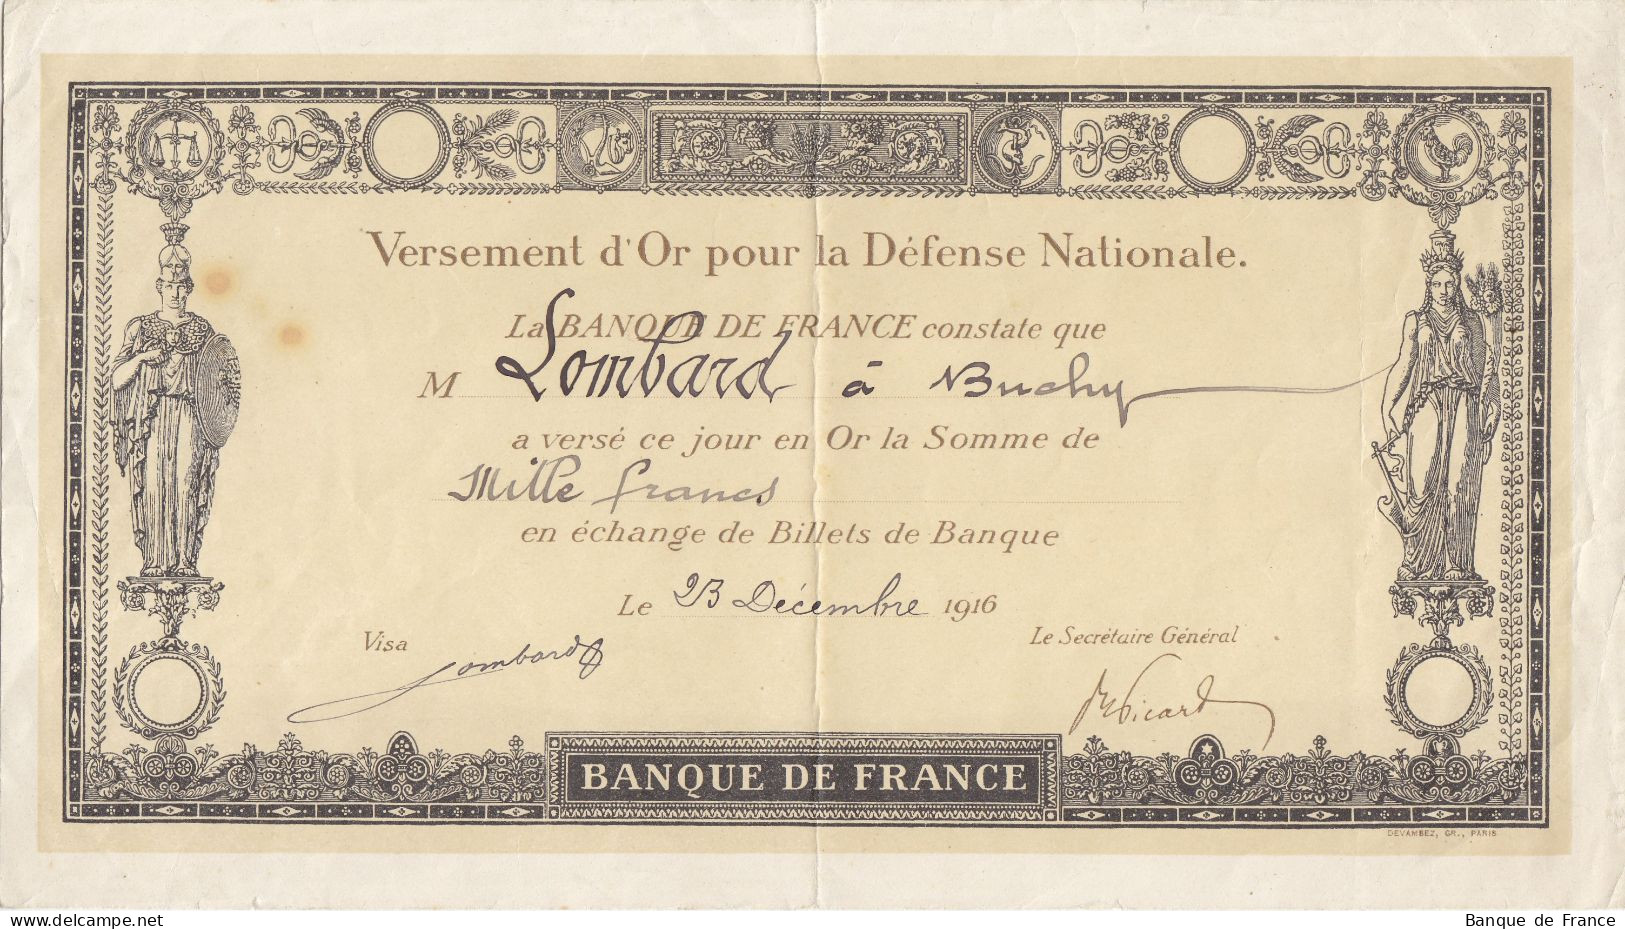 Versement d'Or pour la Défense Nationale.
La BANQUE DE FRANCE constate que
M Lombard à Buchy
a versé ce jour en Or la Somme de
Mille francs
en échange de Billets de Banque
Le 23 Décembre 1916
Visa
Le Secrétaire Général
Lombard
Picard
BANQUE DE FRANCE
DEVAMBEZ, GR., PARIS
www.delcampe.net
Banque de France